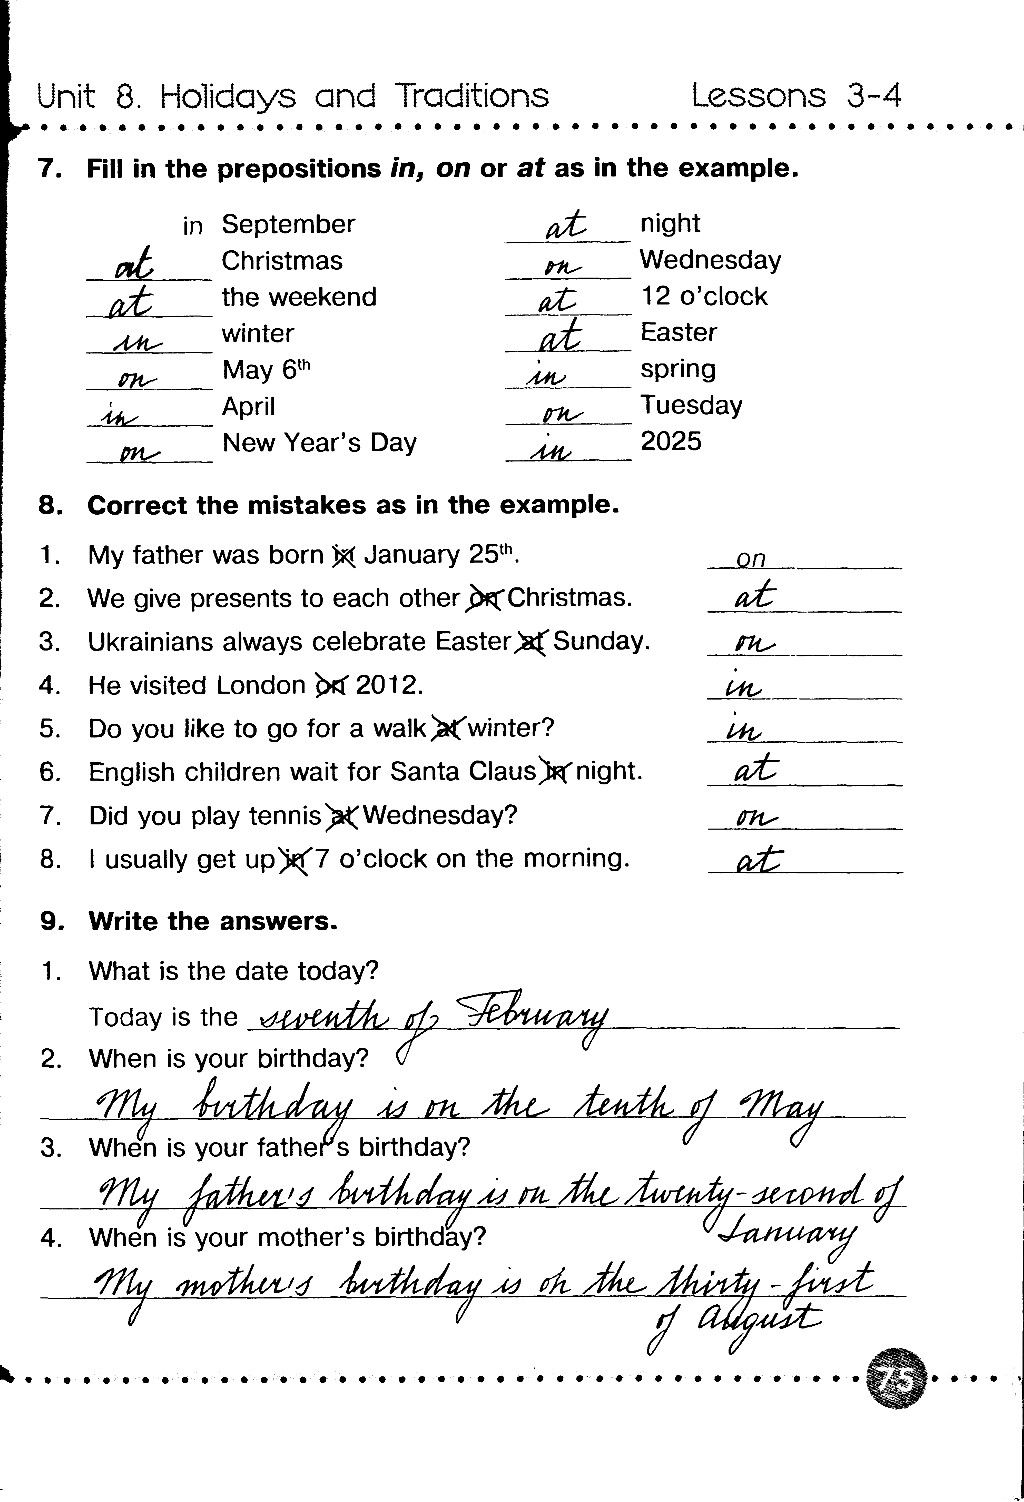 Unit 8. Holidays and Traditions Lessons 3-4
7. Fill in the prepositions in, on or at as in the example.
in September at night
at Christmas on Wednesday
at the weekend at 12 o'clock
in winter at Easter
on May 6th in spring
in April on Tuesday
on New Year's Day in 2025
8. Correct the mistakes as in the example.
1. My father was born in January 25th. on
2. We give presents to each other on Christmas. at
3. Ukrainians always celebrate Easter at Sunday. on
4. He visited London on 2012. in
5. Do you like to go for a walk at winter? in
6. English children wait for Santa Claus in night. at
7. Did you play tennis at Wednesday? on
8. I usually get up in 7 o'clock on the morning. at
9. Write the answers.
1. What is the date today?
Today is the seventh of February
2. When is your birthday?
My birthday is on the tenth of May
3. When is your father's birthday?
My father's birthday is on the twenty-second of
January
4. When is your mother's birthday?
My mother's birthday is on the thirty-first
of August
75